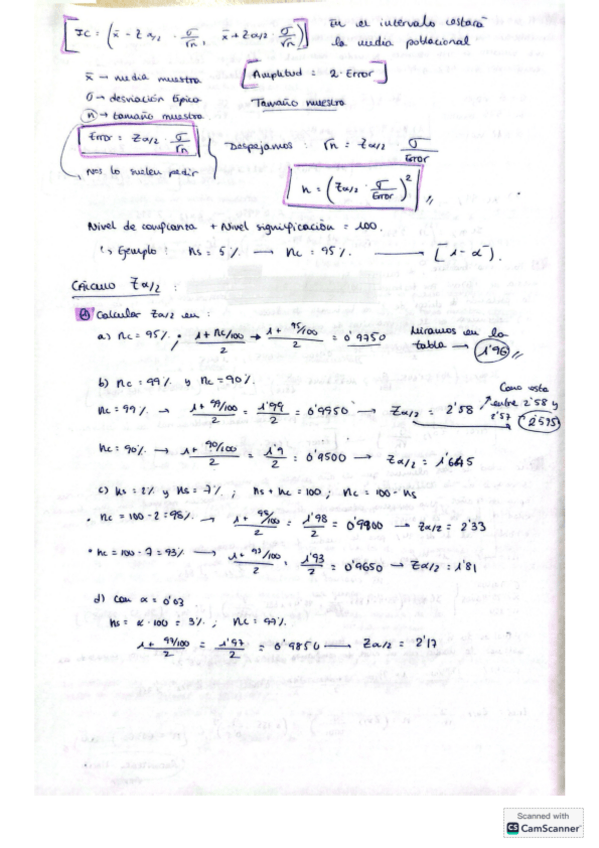 IC = (x̄ - Zα/2 · σ/√n, x̄ + Zα/2 · σ/√n) En el intervalo estará
la media poblacional
x̄ → media muestra [Amplitud = 2·Error]
σ → desviación típica Tamaño muestra
n → tamaño muestra
Error = Zα/2 · σ/√n Despejamos: √n = Zα/2 · σ/Error
Nos lo suelen pedir
n = (Zα/2 · σ/Error)²
Nivel de confianza + Nivel significación = 100
Ejemplo: ns = 5% → nc = 95% → [1-α]
Cálculo Zα/2:
Calcular Zα/2 en:
a) nc = 95%; 1+nc/100 / 2 → 1+95/100 / 2 = 0'9750 Miramos en la
tabla → 1'96
b) nc = 99% y nc = 90%. Como esta
nc = 99% → 1+99/100 / 2 = 1'99/2 = 0'9950 → Zα/2 = 2'58 entre 2'58 y
2'57 2'575
nc = 90% → 1+90/100 / 2 = 1'9/2 = 0'9500 → Zα/2 = 1'645
c) ns = 2% y ns = 7%; ns + nc = 100; nc = 100 - ns
nc = 100-2 = 98% → 1+98/100 / 2 = 1'98/2 = 0'9900 → Zα/2 = 2'33
nc = 100-7 = 93% → 1+93/100 / 2 = 1'93/2 = 0'9650 → Zα/2 = 1'81
d) con α = 0'03
ns = α·100 = 3%; nc = 97%.
1+97/100 / 2 = 1'97/2 = 0'9850 → Zα/2 = 2'17
Scanned with
CS CamScanner